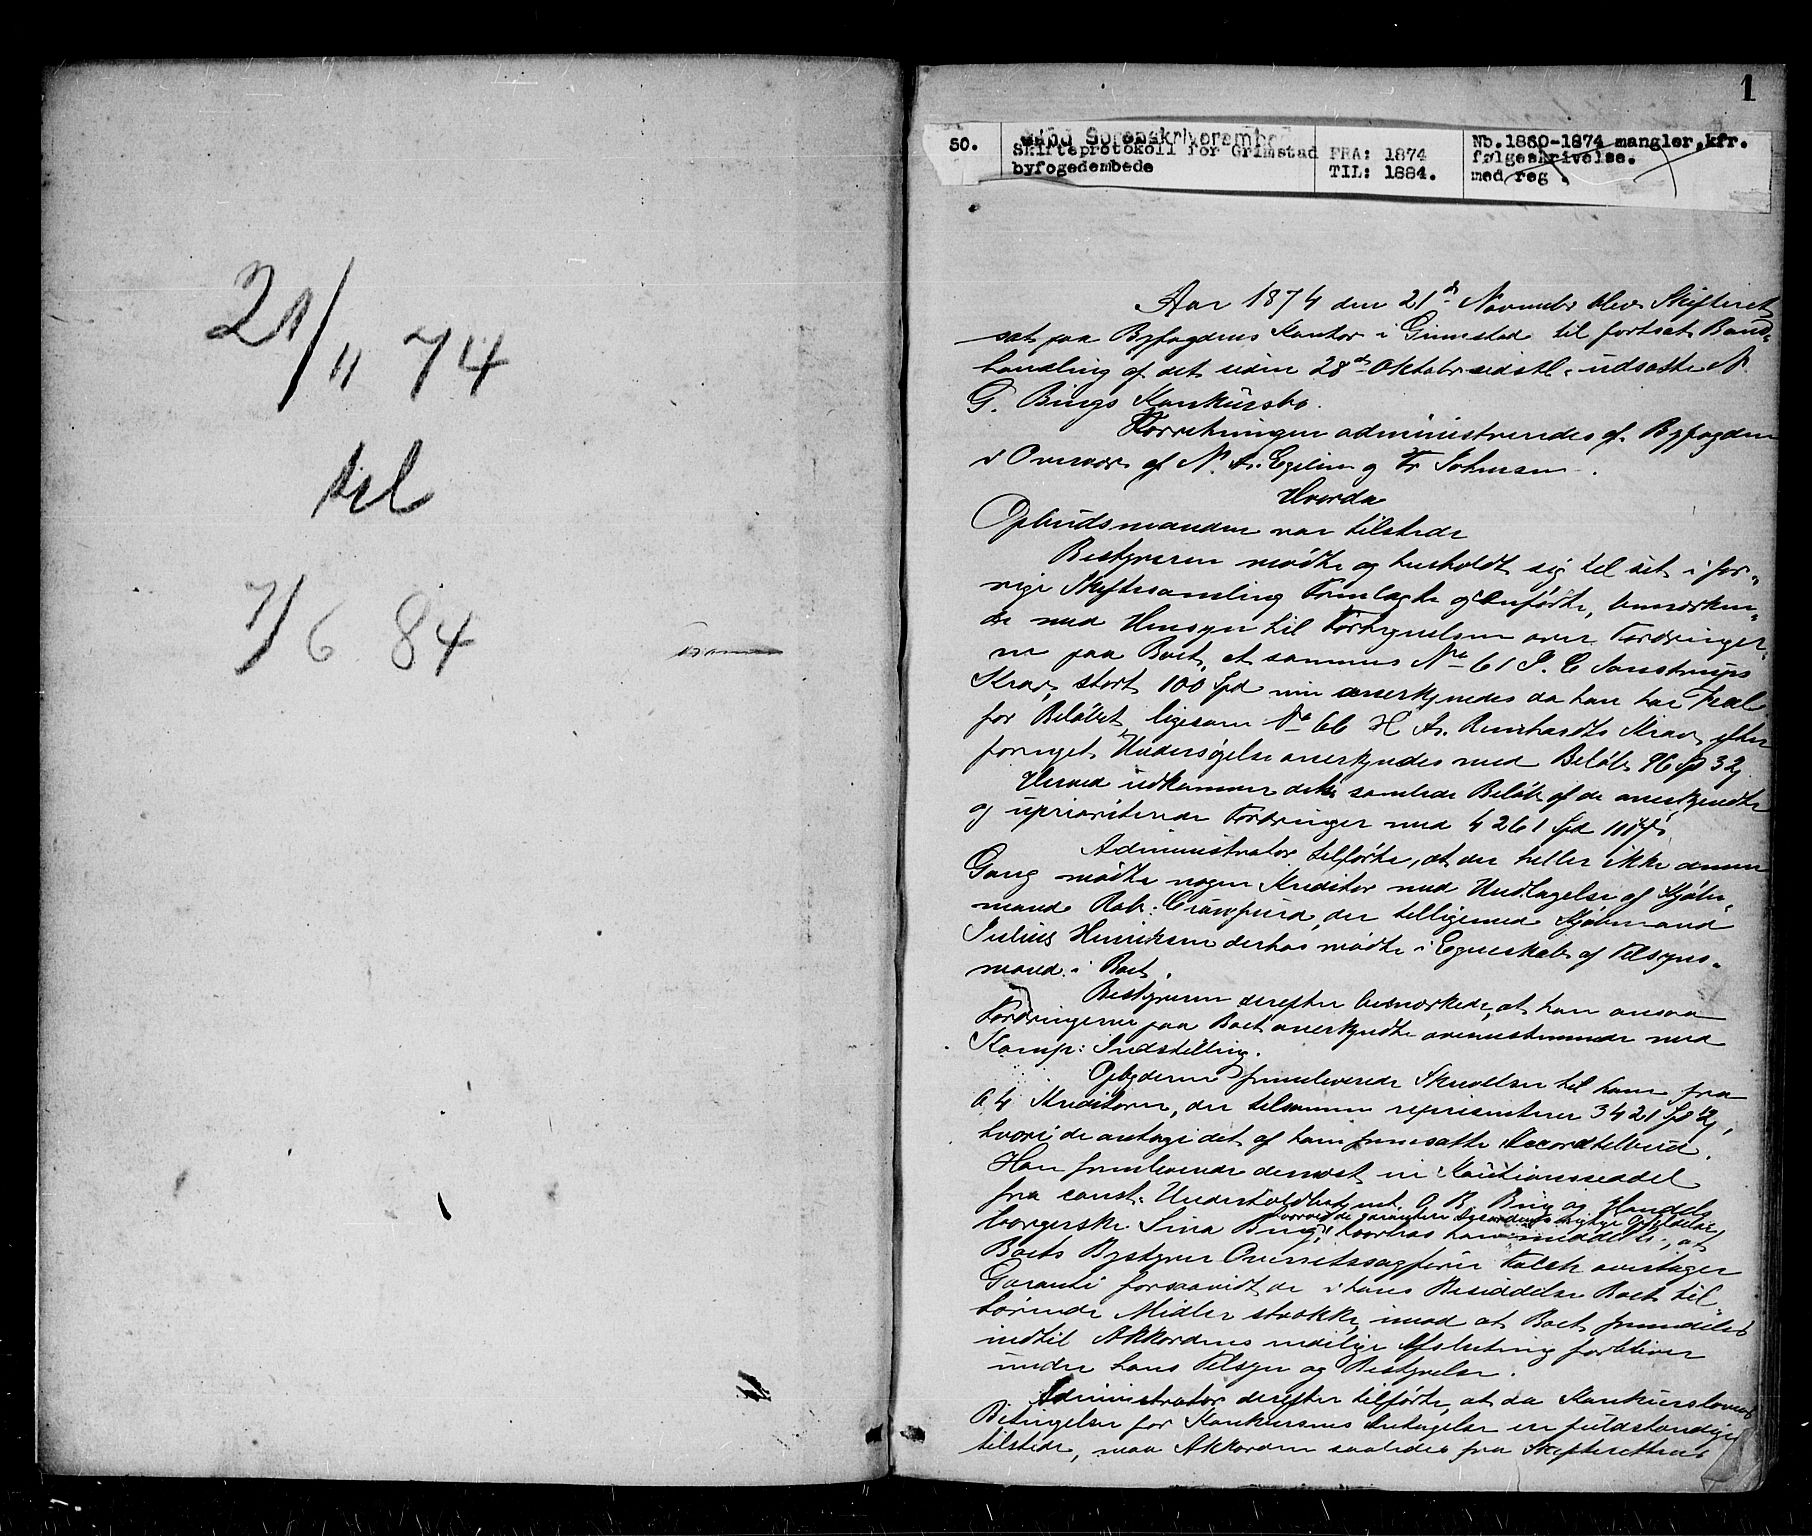 21/11 74
til
7/6 84
1
50.
Sorenskriverembe
Skifteprotokoll for Grimstad
byfogedembede
FRA: 1874
TIL: 1884.
Nb. 1860-1874 mangler, kfr.
følgeskrivelse.
med reg.
Aar 1874 den 21de November blev Skifteret
sat paa Byfogdens Kontor i Grimstad til fortsat Bo⸗
handling af det under 28de Oktober sidstl. udsatte N.
G. Bings Konkursbo.
Forretningen administreredes af Byfogden
i Overvær af N. A. Egelien og Fr Johnsen.
Hvorda
Opbudsmanden var tilstede
Bestyreren mødte og henholdt sig til sit i for⸗
rige Skiftesamling Fremlagte og Anførte, bemærken⸗
de med Hensyn til Fortegnelsen over Fordringer⸗
ne paa Boet, at sammes No 61 J. C. Krav, stort 100 Spd nu anerkjendes da han har
for Beløbet, ligesom No 66 H. A. Reinhardts Krav efter
fornyet Undersøgelse anerkjendes med Beløb 96 Spd 32
Herved udkommer det samlede Beløb af de anerkjendte
og uprioriterede Fordringer med 4261 Spd
Administrator tilførte, at der heller ikke denne
Gang mødte nogen Kreditor med Undtagelse af Kjøb⸗
mand Rob: Crawfurd, der tilligemed Kjøbmand
Julius Henriksen derhos mødte i Egenskab af Tilsyns⸗
mænd i Boet.
Bestyreren derefter bemærkede, at han ansaa
Fordringerne paa Boet anerkjendte overensstemmende med
Indstilling.
Opbyderen fremleverede Skrivelser til ham fra
64 Kreditorer, der tilsammen repræsenterer 3421 Spd
hvori de antage det af ham fremsatte Accordtilbud.
Han fremleverede dernæst en Kautionsseddel
fra const. Underfoldbetjent O. B. Bing og Handels
hvorved de garantere Accordens rigtige Opfyldelse
borgerske Lina Bing, hvorhos han meddelte, at
Boets Bestyrer Overretssagfører Falch overtager
Garanti forsaavidt de i hans Besiddelse Boet til⸗
hørende Midler strække, imod at Boet fremdeles
indtil Akkordens endelige Afslutning forbliver
under hans Tilsyn og Bestyrelse.
Administrator derefter tilførte, at da Konkurslovens
Betingelser for Konkursens Antagelse er fuldstændige
tilstede, maa Akkorden saaledes fra Skifterettens